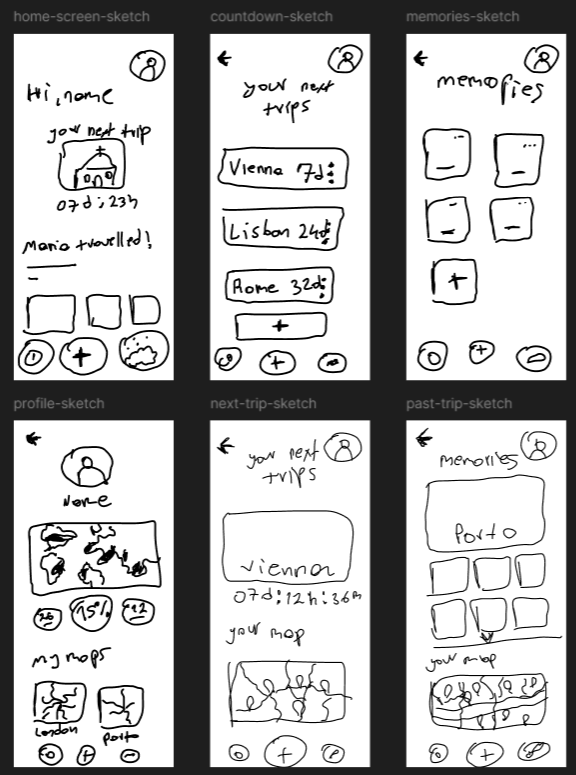 home-screen-sketch
Hi, name
your next trip
07d:23h
Maria travelled!
+
countdown-sketch
your next
trips
Vienna 7d
Lisbon 24d
Rome 32d
+
+
memories-sketch
memories
+
+
profile-sketch
Name
15%
12
my maps
London
Porto
+
next-trip-sketch
your next
trips
Vienna
07d:12h:36m
your map
+
past-trip-sketch
memories
Porto
your map
+